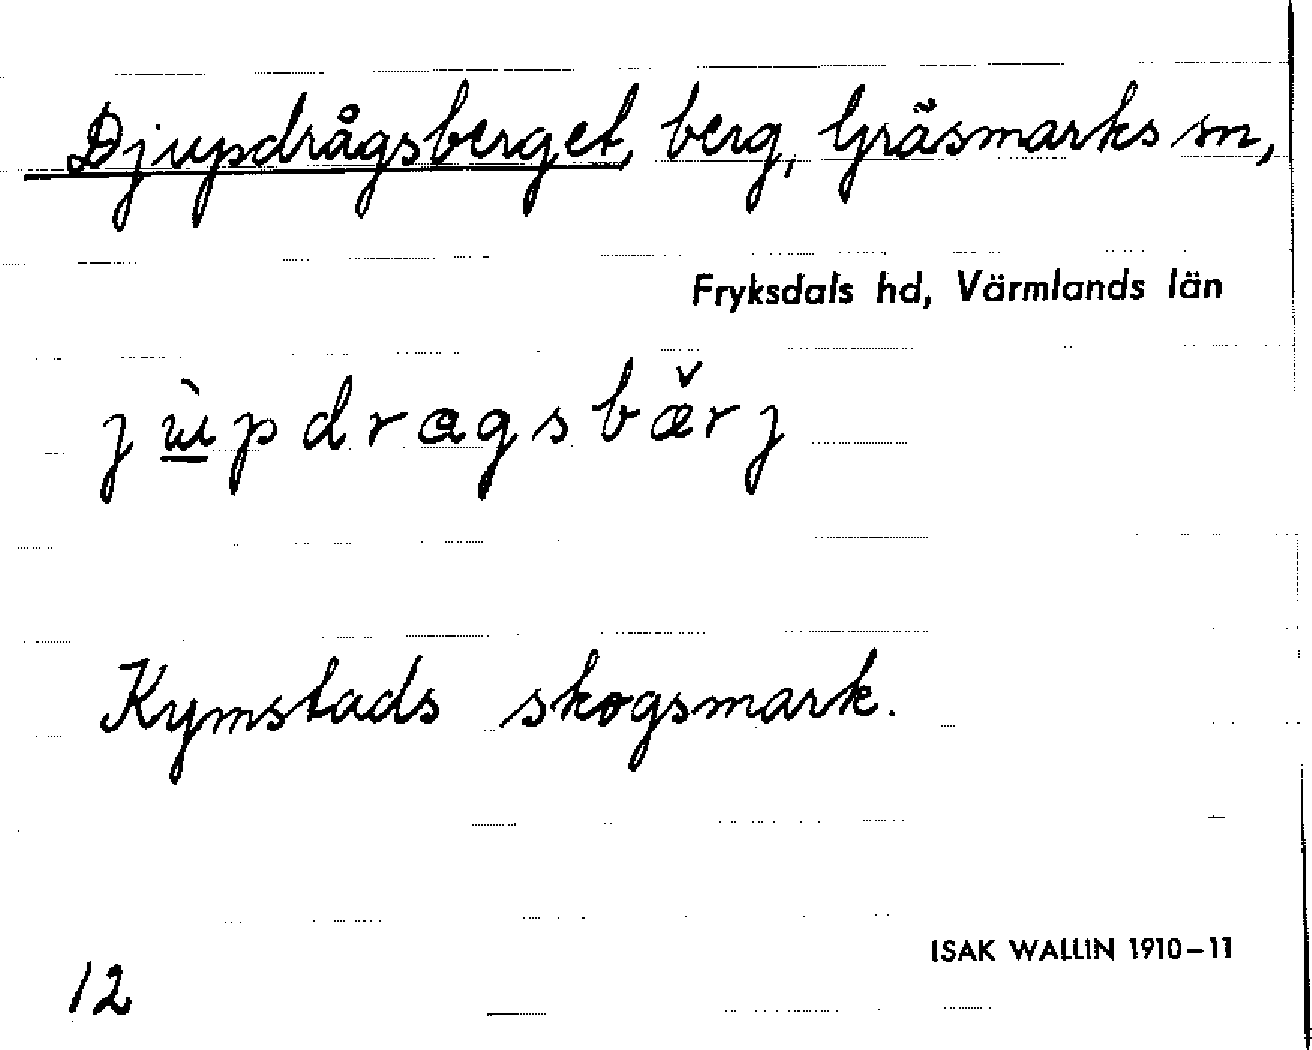 Djupdrågsberget, berg, Gräsmarks sn,
Fryksdals hd, Värmlands län
Kymstads skogsmark.
ISAK WALLIN 1910–11
12